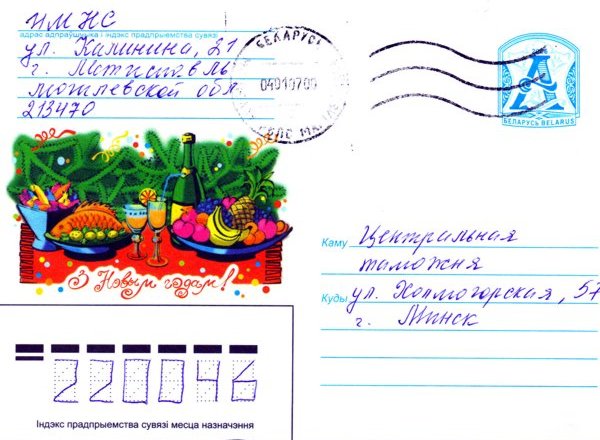 ИМНС
адрас адпраўшчыка і індэкс прадпрыемства сувязі
ул. Калинина, 21
г. Мстиславль
могилевской обл
213470
БЕЛАРУСЬ
040107 09
А
БЕЛАРУСЬ BELARUS
З Новым годам!
Каму Центральная
таможня
Куды ул. Холмогорская, 57
г. Минск
220046
Індэкс прадпрыемства сувязі месца назначэння